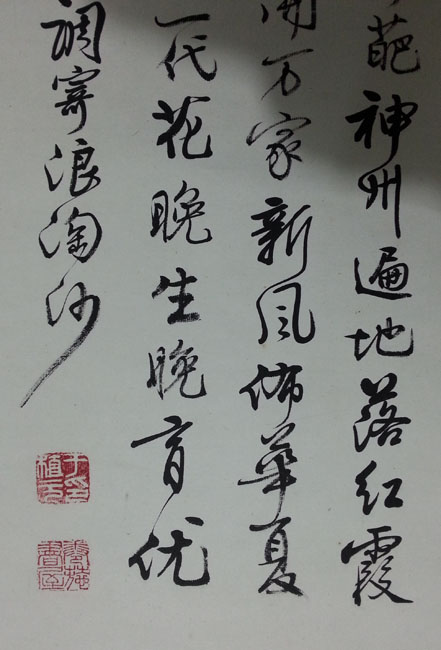 葩神州遍地落红霞
开万家新风佈華夏
一代花晚生晚育优
調寄浪淘沙